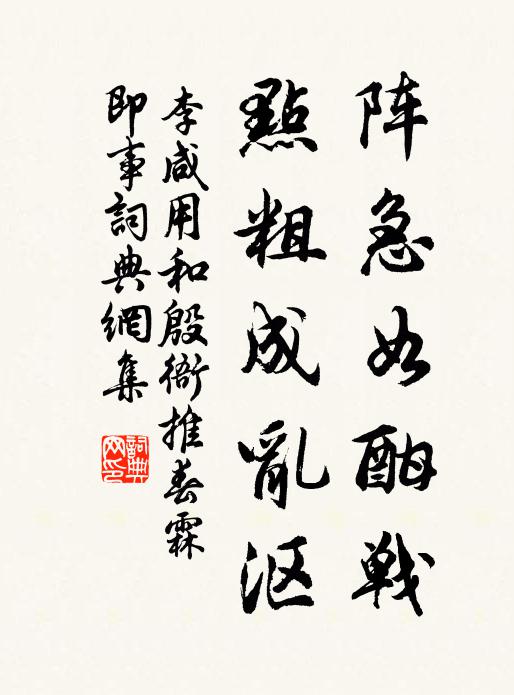 阵急如酣战
點粗成亂沤
李咸用和殷衙推春霖
即事詞典網集
詞典网印